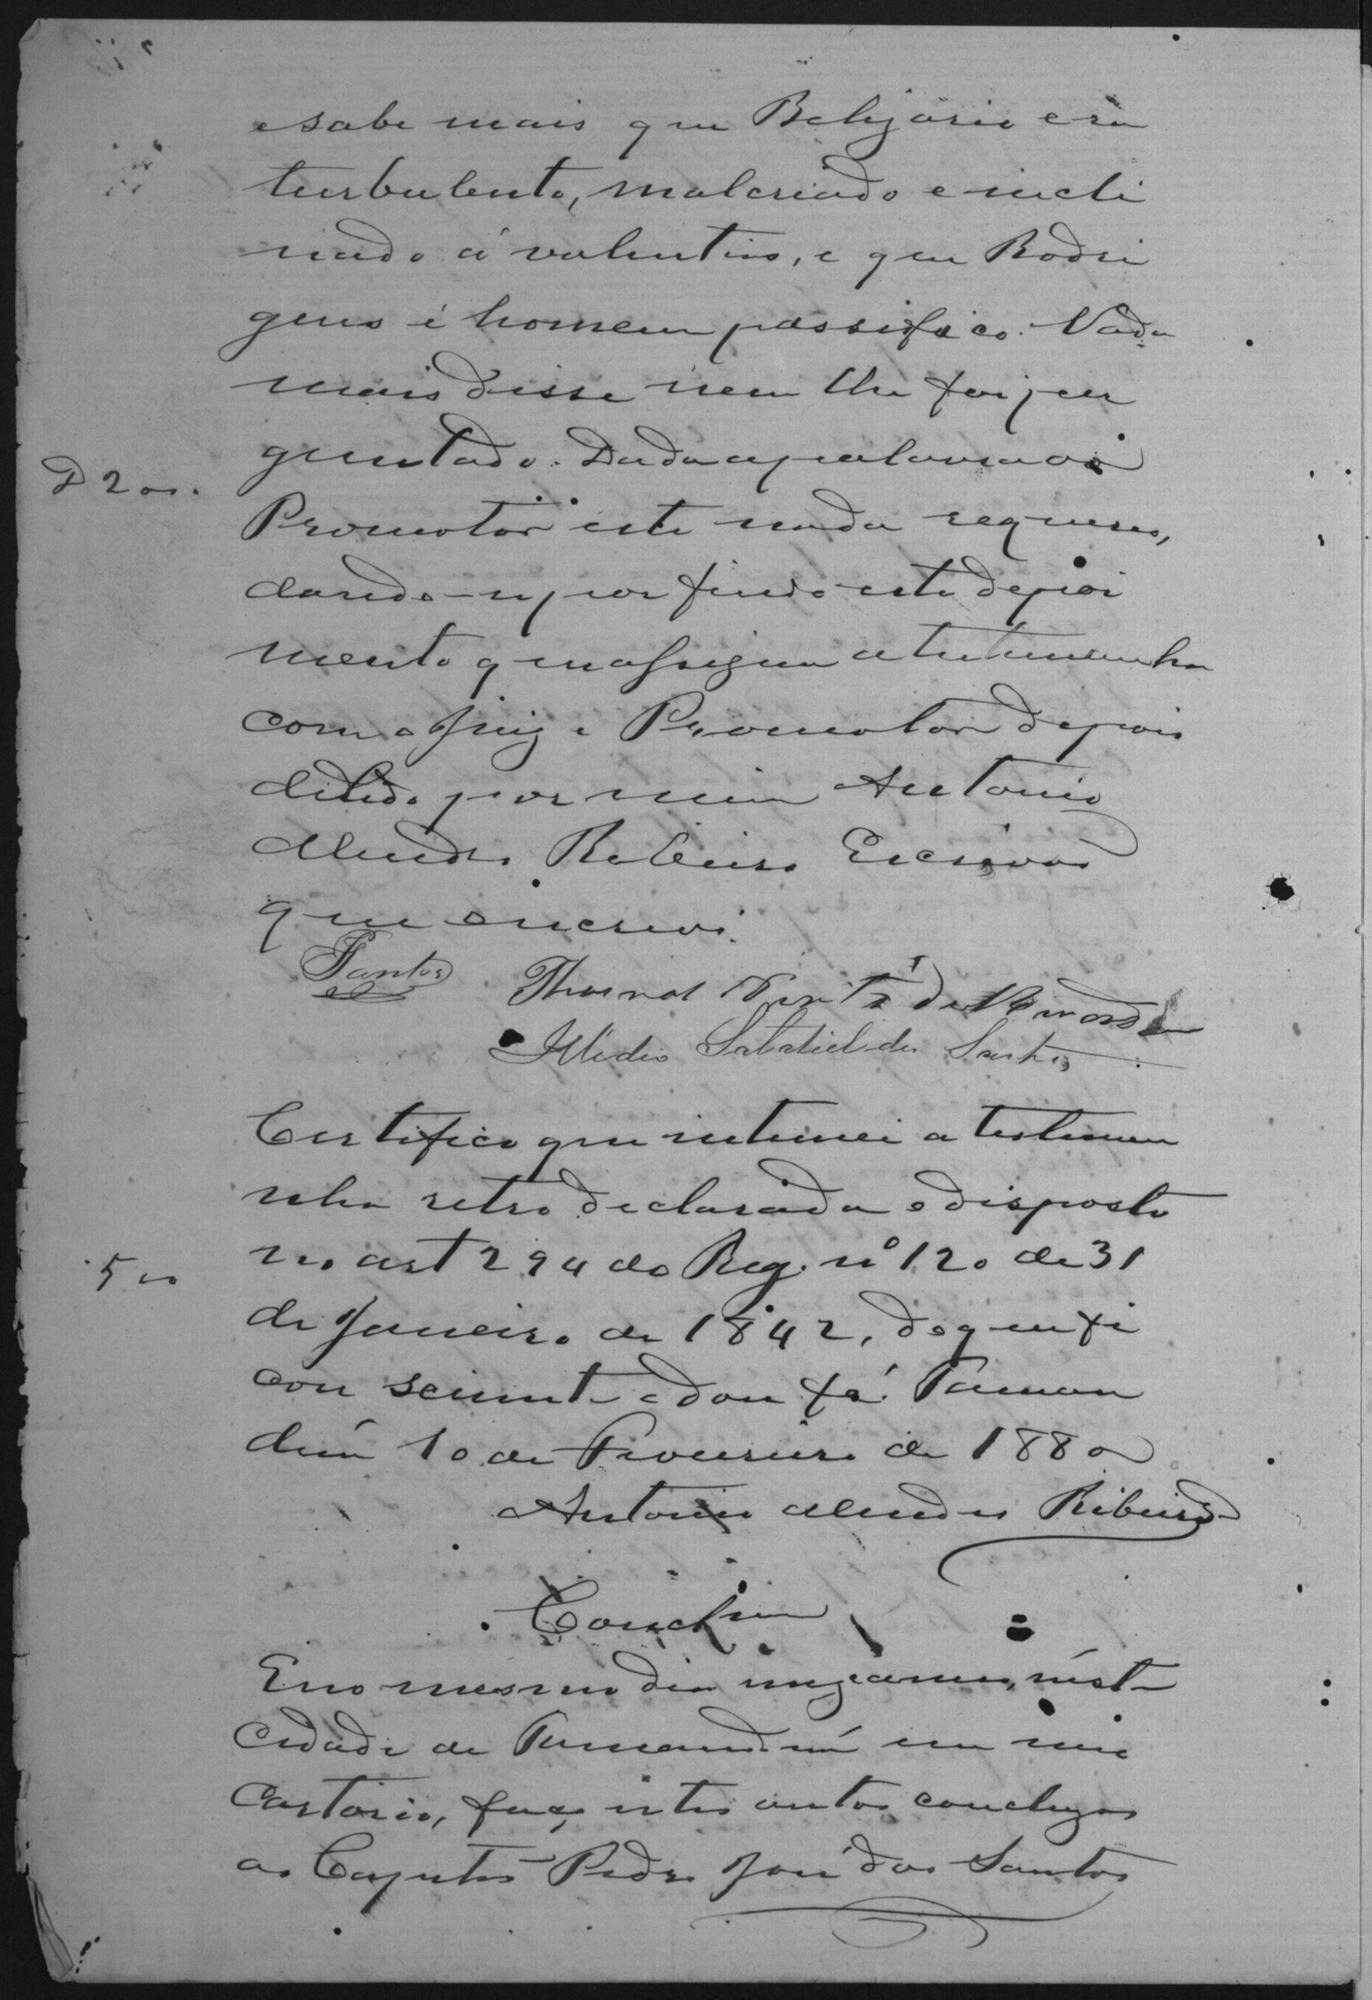 e sabe mais que Belizario era
turbulento, malcriado e incli
nado á valentias, e que Rodri
gues é homem passifico. Nada
mais disse nem lhe foi per
guntado. Dada a palavra ao
D 200.
Promotor este nada requereo,
dando-se por findo este depoi
mento que assigna a testemunha
com o Juiz e Promotor depois
de lido por mim Antonio
Mendes Ribeiro Escrivão
que escrevi.
Santos
Elidio Salatiel dos Santos
Certifico que intimei a testemu
nha retro declarada o disposto
500
no art 294 do Reg. nº 120 de 31
de Janeiro de 1842, do que fi
cou sciente e dou fé. Taman
duá 10 de Fevereiro de 1880
Antonio Mendes Ribeiro
Conclusão
E no mesmo dia mez e anno, nesta
Cidade de Tamanduá em meu
Cartorio, faço estes autos conclusos
ao Capitão Pedro José dos Santos